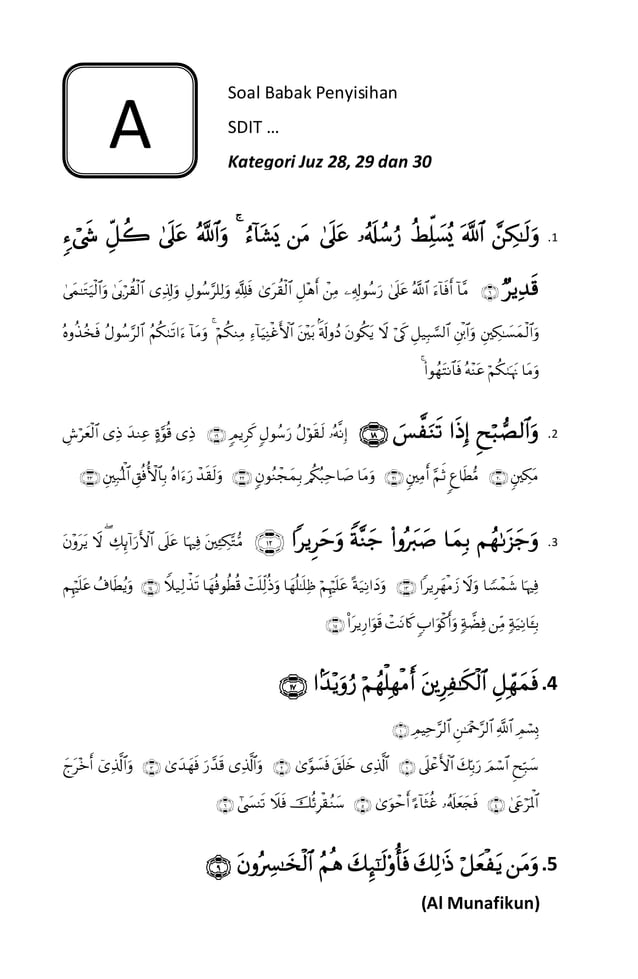 A
Soal Babak Penyisihan
SDIT ...
Kategori Juz 28, 29 dan 30
1. وَلَٰكِنَّ ٱللَّهَ يُسَلِّطُ رُسُلَهُۥ عَلَىٰ مَن يَشَآءُ ۚ وَٱللَّهُ عَلَىٰ كُلِّ شَىْءٍ
قَدِيرٌ ۝٦ مَّآ أَفَآءَ ٱللَّهُ عَلَىٰ رَسُولِهِۦ مِنْ أَهْلِ ٱلْقُرَىٰ فَلِلَّهِ وَلِلرَّسُولِ وَلِذِى ٱلْقُرْبَىٰ وَٱلْيَتَٰمَىٰ
وَٱلْمَسَٰكِينِ وَٱبْنِ ٱلسَّبِيلِ كَىْ لَا يَكُونَ دُولَةًۢ بَيْنَ ٱلْأَغْنِيَآءِ مِنكُمْ ۚ وَمَآ ءَاتَىٰكُمُ ٱلرَّسُولُ فَخُذُوهُ
وَمَا نَهَىٰكُمْ عَنْهُ فَٱنتَهُوا۟ ۚ
2. وَٱلصُّبْحِ إِذَا تَنَفَّسَ ۝١٨ إِنَّهُۥ لَقَوْلُ رَسُولٍ كَرِيمٍ ۝١٩ ذِى قُوَّةٍ عِندَ ذِى ٱلْعَرْشِ
مَكِينٍ ۝٢٠ مُّطَاعٍ ثَمَّ أَمِينٍ ۝٢١ وَمَا صَاحِبُكُم بِمَجْنُونٍ ۝٢٢ وَلَقَدْ رَءَاهُ بِٱلْأُفُقِ ٱلْمُبِينِ ۝٢٣
3. وَجَزَىٰهُم بِمَا صَبَرُوا۟ جَنَّةً وَحَرِيرًا ۝١٢ مُّتَّكِـِٔينَ فِيهَا عَلَى ٱلْأَرَآئِكِ ۖ لَا يَرَوْنَ
فِيهَا شَمْسًا وَلَا زَمْهَرِيرًا ۝١٣ وَدَانِيَةً عَلَيْهِمْ ظِلَٰلُهَا وَذُلِّلَتْ قُطُوفُهَا تَذْلِيلًا ۝١٤ وَيُطَافُ عَلَيْهِم
بِـَٔانِيَةٍ مِّن فِضَّةٍ وَأَكْوَابٍ كَانَتْ قَوَارِيرَا۠ ۝١٥
4. فَمَهِّلِ ٱلْكَٰفِرِينَ أَمْهِلْهُمْ رُوَيْدًۢا ۝١٧
بِسْمِ ٱللَّهِ ٱلرَّحْمَٰنِ ٱلرَّحِيمِ ۝١
سَبِّحِ ٱسْمَ رَبِّكَ ٱلْأَعْلَى ۝١ ٱلَّذِى خَلَقَ فَسَوَّىٰ ۝٢ وَٱلَّذِى قَدَّرَ فَهَدَىٰ ۝٣ وَٱلَّذِىٓ أَخْرَجَ
ٱلْمَرْعَىٰ ۝٤ فَجَعَلَهُۥ غُثَآءً أَحْوَىٰ ۝٥ سَنُقْرِئُكَ فَلَا تَنسَىٰٓ ۝٦
5. وَمَن يَفْعَلْ ذَٰلِكَ فَأُو۟لَٰٓئِكَ هُمُ ٱلْخَٰسِرُونَ ۝٩
(Al Munafikun)